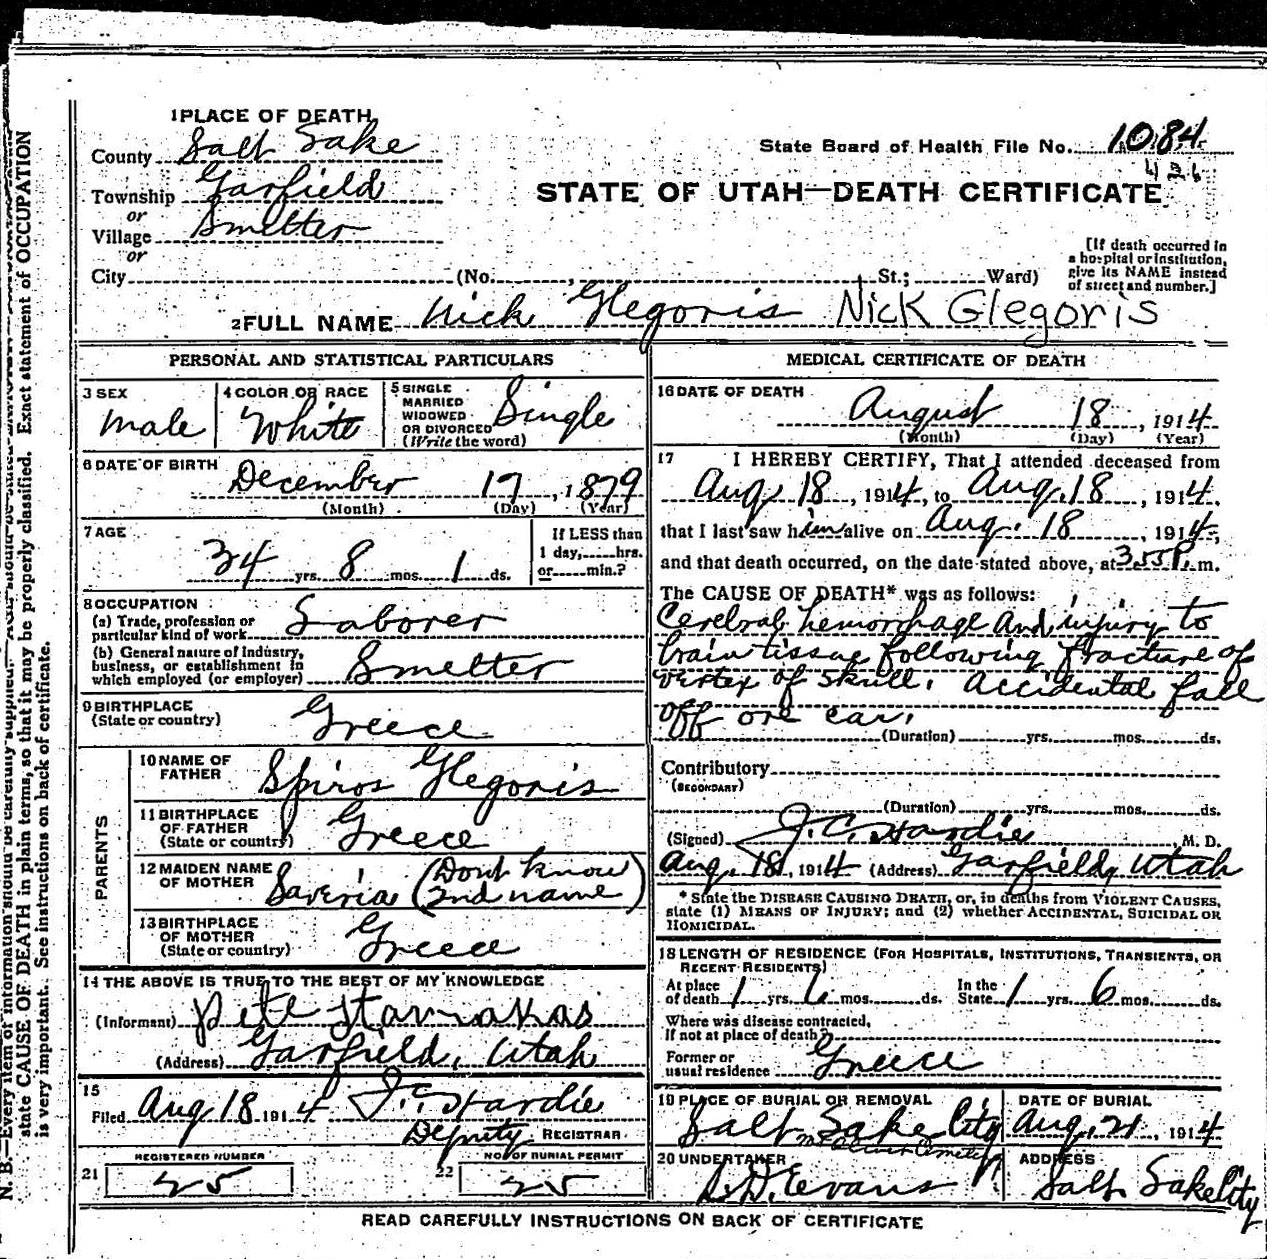 1 PLACE OF DEATH
County Salt Lake
State Board of Health File No. 1084
426
Township Garfield
or
STATE OF UTAH—DEATH CERTIFICATE
Village Smelter
or
City (No. , St.; Ward)
[If death occurred in
a hospital or institution,
give its NAME instead
of street and number.]
2 FULL NAME Nick Glegoris Nick Glegoris
PERSONAL AND STATISTICAL PARTICULARS
3 SEX
male
4 COLOR OR RACE
White
5 SINGLE
MARRIED
WIDOWED
OR DIVORCED
(Write the word)
Single
6 DATE OF BIRTH
December 17, 1879
(Month) (Day) (Year)
7 AGE
34 yrs. 8 mos. 1 ds.
If LESS than
1 day, hrs.
or min.?
8 OCCUPATION
(a) Trade, profession or
particular kind of work Laborer
(b) General nature of industry,
business, or establishment in
which employed (or employer) Smelter
9 BIRTHPLACE
(State or country) Greece
PARENTS
10 NAME OF
FATHER Spiros Glegoris
11 BIRTHPLACE
OF FATHER
(State or country) Greece
12 MAIDEN NAME
OF MOTHER Saveria (Dont know
2nd name)
13 BIRTHPLACE
OF MOTHER
(State or country) Greece
14 THE ABOVE IS TRUE TO THE BEST OF MY KNOWLEDGE
(Informant) Pete Stamakas
(Address) Garfield, Utah
15
Filed Aug 18 1914 J. C. Hardie
Deputy REGISTRAR
21 REGISTERED NUMBER
25
22 NO. OF BURIAL PERMIT
25
MEDICAL CERTIFICATE OF DEATH
16 DATE OF DEATH
August 18, 1914
(Month) (Day) (Year)
17 I HEREBY CERTIFY, That I attended deceased from
Aug. 18, 1914, to Aug. 18, 1914.
that I last saw him alive on Aug. 18, 1914,
and that death occurred, on the date stated above, at 3.55 P. m.
The CAUSE OF DEATH* was as follows:
Cerebral hemorrhage and injury to
brain tissue following fracture of
vertex of skull. Accidental fall
off ore car.
(Duration) yrs. mos. ds.
Contributory
(SECONDARY)
(Duration) yrs. mos. ds.
(Signed) J. C. Hardie, M. D.
Aug. 18, 1914 (Address) Garfield, Utah
* State the DISEASE CAUSING DEATH, or, in deaths from VIOLENT CAUSES,
state (1) MEANS OF INJURY; and (2) whether ACCIDENTAL, SUICIDAL OR
HOMICIDAL.
18 LENGTH OF RESIDENCE (FOR HOSPITALS, INSTITUTIONS, TRANSIENTS, OR
RECENT RESIDENTS)
At place
of death 1 yrs. 6 mos. ds. In the
State 1 yrs. 6 mos. ds.
Where was disease contracted,
if not at place of death?
Former or
usual residence Greece
19 PLACE OF BURIAL OR REMOVAL
Salt Lake City
Mt Olivet Cemetery
DATE OF BURIAL
Aug. 21, 1914
20 UNDERTAKER
Evans
ADDRESS
Salt Lake City
READ CAREFULLY INSTRUCTIONS ON BACK OF CERTIFICATE
N. B.—Every item of information should be carefully supplied. AGE should be stated
state CAUSE OF DEATH in plain terms, so that it may be properly classified. Exact statement of OCCUPATION
is very important. See instructions on back of certificate.